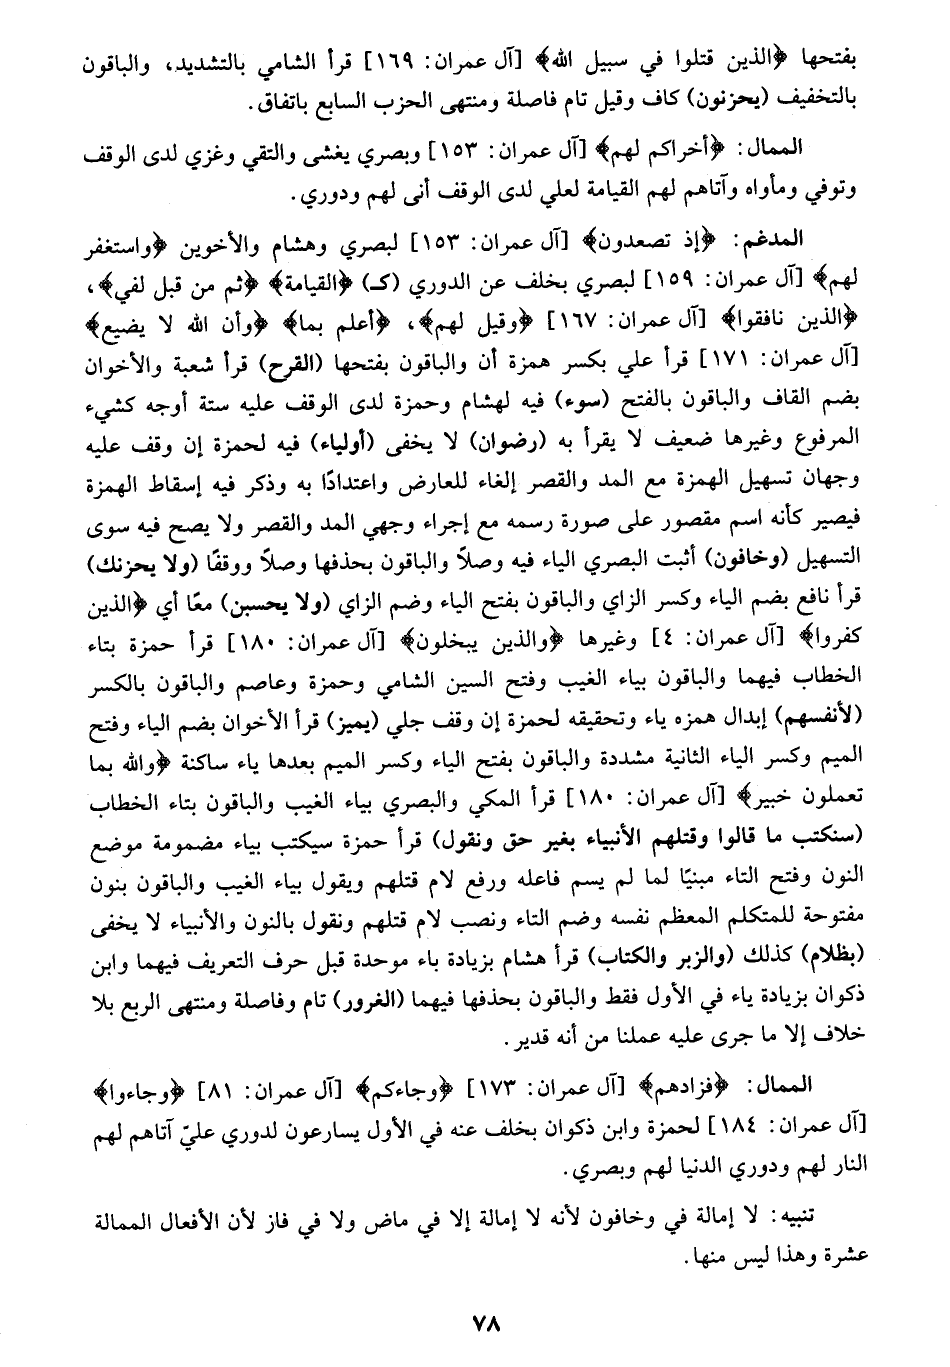 بفتحها ﴿الذين قتلوا في سبيل الله﴾ [آل عمران: ١٦٩] قرأ الشامي بالتشديد، والباقون
بالتخفيف (يحزنون) كاف وقيل تام فاصلة ومنتهى الحزب السابع باتفاق.
الممال: ﴿أخراكم لهم﴾ [آل عمران: ١٥٣] وبصري يغشى والتقي وغزي لدى الوقف
وتوفي ومأواه وآتاهم لهم القيامة لعلي لدى الوقف أنى لهم ودوري.
المدغم: ﴿إذ تصعدون﴾ [آل عمران: ١٥٣] لبصري وهشام والأخوين ﴿واستغفر
لهم﴾ [آل عمران: ١٥٩] لبصري بخلف عن الدوري (كـ) ﴿القيامة﴾ ﴿ثم من قبل لفي﴾،
﴿الذين نافقوا﴾ [آل عمران: ١٦٧] ﴿وقيل لهم﴾، ﴿أعلم بما﴾ ﴿وأن الله لا يضيع﴾
[آل عمران: ١٧١] قرأ علي بكسر همزة أن والباقون بفتحها (القرح) قرأ شعبة والأخوان
بضم القاف والباقون بالفتح (سوء) فيه لهشام وحمزة لدى الوقف عليه ستة أوجه كشيء
المرفوع وغيرها ضعيف لا يقرأ به (رضوان) لا يخفى (أولياء) فيه لحمزة إن وقف عليه
وجهان تسهيل الهمزة مع المد والقصر إلغاء للعارض واعتدادًا به وذكر فيه إسقاط الهمزة
فيصير كأنه اسم مقصور على صورة رسمه مع إجراء وجهي المد والقصر ولا يصح فيه سوى
التسهيل (وخافون) أثبت البصري الياء فيه وصلاً والباقون بحذفها وصلاً ووقفًا (ولا يحزنك)
قرأ نافع بضم الياء وكسر الزاي والباقون بفتح الياء وضم الزاي (ولا يحسبن) معًا أي ﴿الذين
كفروا﴾ [آل عمران: ٤] وغيرها ﴿والذين يبخلون﴾ [آل عمران: ١٨٠] قرأ حمزة بتاء
الخطاب فيهما والباقون بياء الغيب وفتح السين الشامي وحمزة وعاصم والباقون بالكسر
(لأنفسهم) إبدال همزه ياء وتحقيقه لحمزة إن وقف جلي (يميز) قرأ الأخوان بضم الياء وفتح
الميم وكسر الياء الثانية مشددة والباقون بفتح الياء وكسر الميم بعدها ياء ساكنة ﴿والله بما
تعملون خبير﴾ [آل عمران: ١٨٠] قرأ المكي والبصري بياء الغيب والباقون بتاء الخطاب
(سنكتب ما قالوا وقتلهم الأنبياء بغير حق ونقول) قرأ حمزة سيكتب بياء مضمومة موضع
النون وفتح التاء مبنيًا لما لم يسم فاعله ورفع لام قتلهم ويقول بياء الغيب والباقون بنون
مفتوحة للمتكلم المعظم نفسه وضم التاء ونصب لام قتلهم ونقول بالنون والأنبياء لا يخفى
(بظلام) كذلك (والزبر والكتاب) قرأ هشام بزيادة باء موحدة قبل حرف التعريف فيهما وابن
ذكوان بزيادة ياء في الأول فقط والباقون بحذفها فيهما (الغرور) تام وفاصلة ومنتهى الربع بلا
خلاف إلا ما جرى عليه عملنا من أنه قدير.
الممال: ﴿فزادهم﴾ [آل عمران: ١٧٣] ﴿وجاءكم﴾ [آل عمران: ٨١] ﴿وجاءوا﴾
[آل عمران: ١٨٤] لحمزة وابن ذكوان بخلف عنه في الأول يسارعون لدوري عليّ آتاهم لهم
النار لهم ودوري الدنيا لهم وبصري.
تنبيه: لا إمالة في وخافون لأنه لا إمالة إلا في ماض ولا في فاز لأن الأفعال الممالة
عشرة وهذا ليس منها.
٧٨